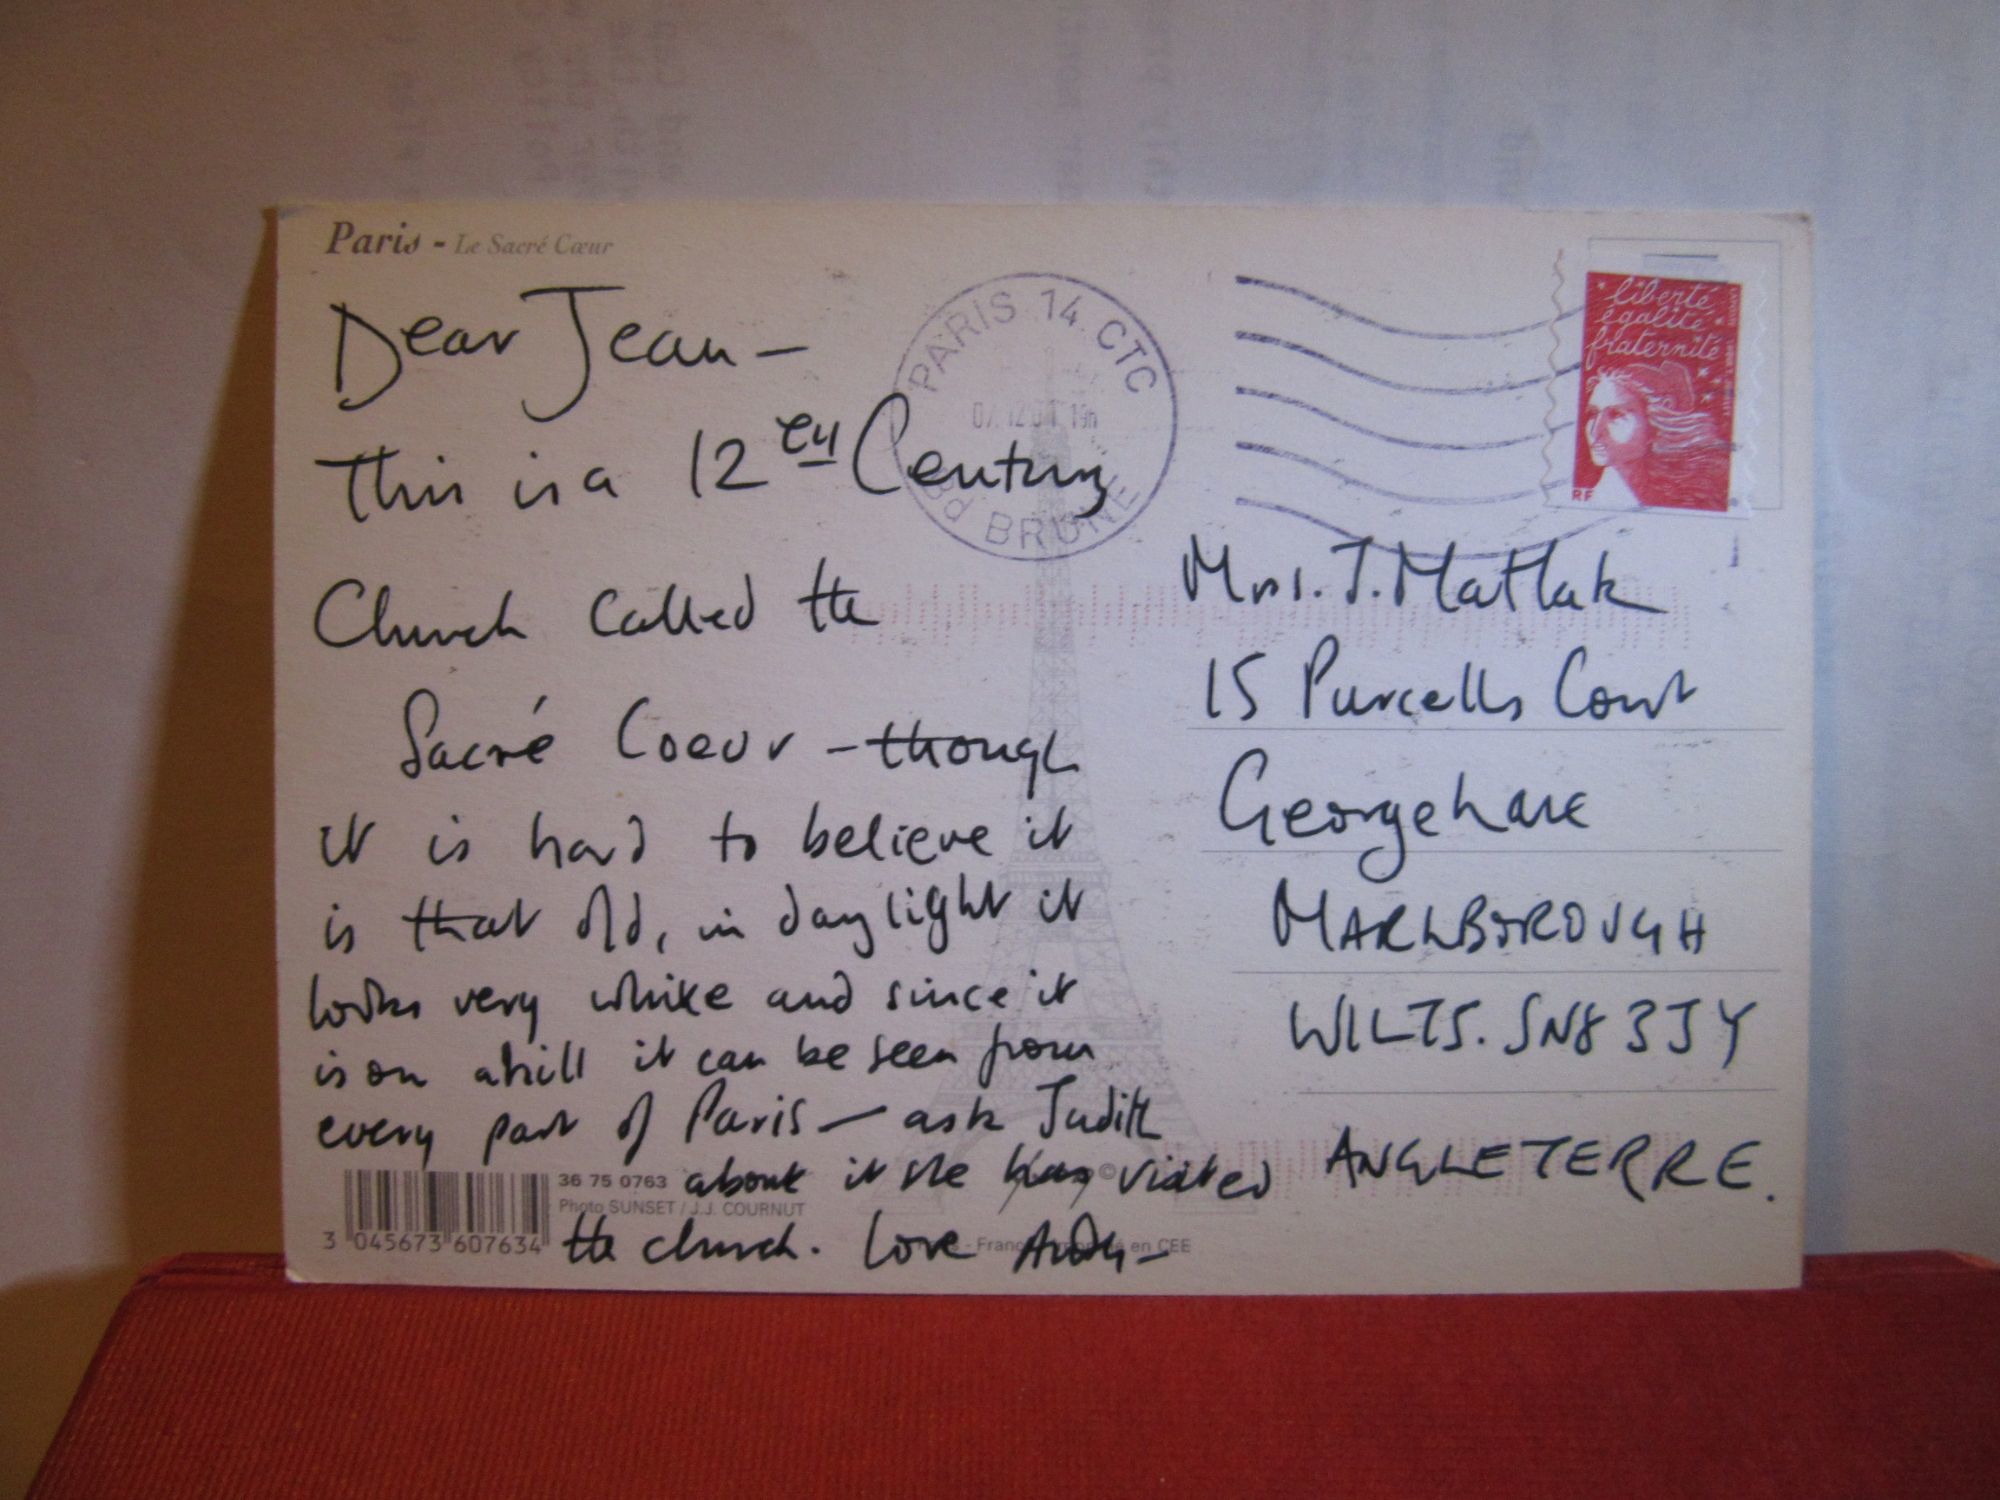 Paris - Le Sacré Cœur
Dear Jean –
This is a 12 Century
Church called the
Sacré Coeur – though
it is hard to believe it
is that old, in daylight it
looks very white and since it
is on a hill it can be seen from
every part of Paris – ask Judith
about it she has visited
the church. Love Andy –
36 75 0763
Photo SUNSET / J.J. COURNUT
3 045673 607634
en CEE
PARIS 14 CTC
19h
Bd BRUNE
liberté
égalité
fraternité
RF
Mrs. J. Matlak
15 Purcells Court
George Lane
MARLBOROUGH
WILTS. SN8 3JY
ANGLETERRE.